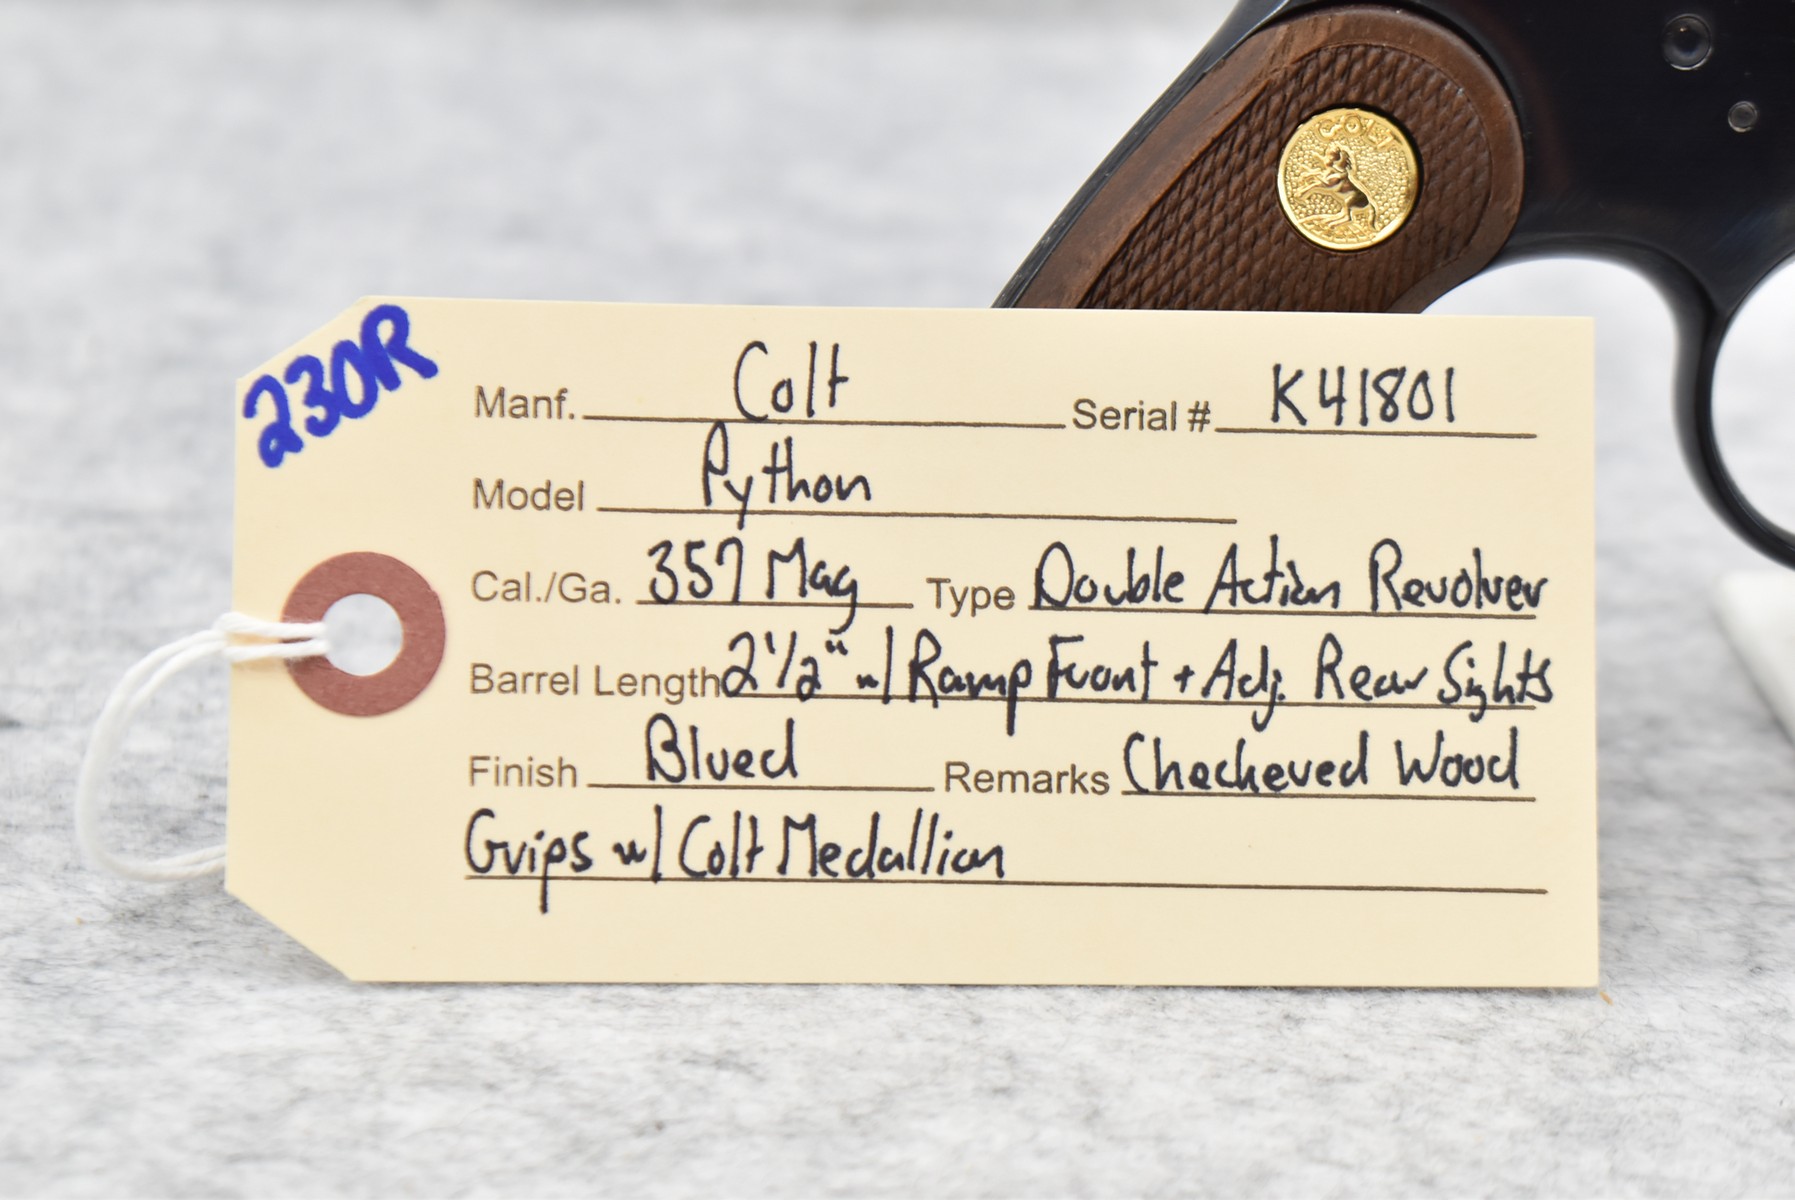 COLT
230R
Manf. Colt Serial # K41801
Model Python
Cal./Ga. 357 Mag Type Double Action Revolver
Barrel Length 2 1/2" w/ Ramp Front + Adj. Rear Sights
Finish Blued Remarks Checkered Wood
Grips w/ Colt Medallion